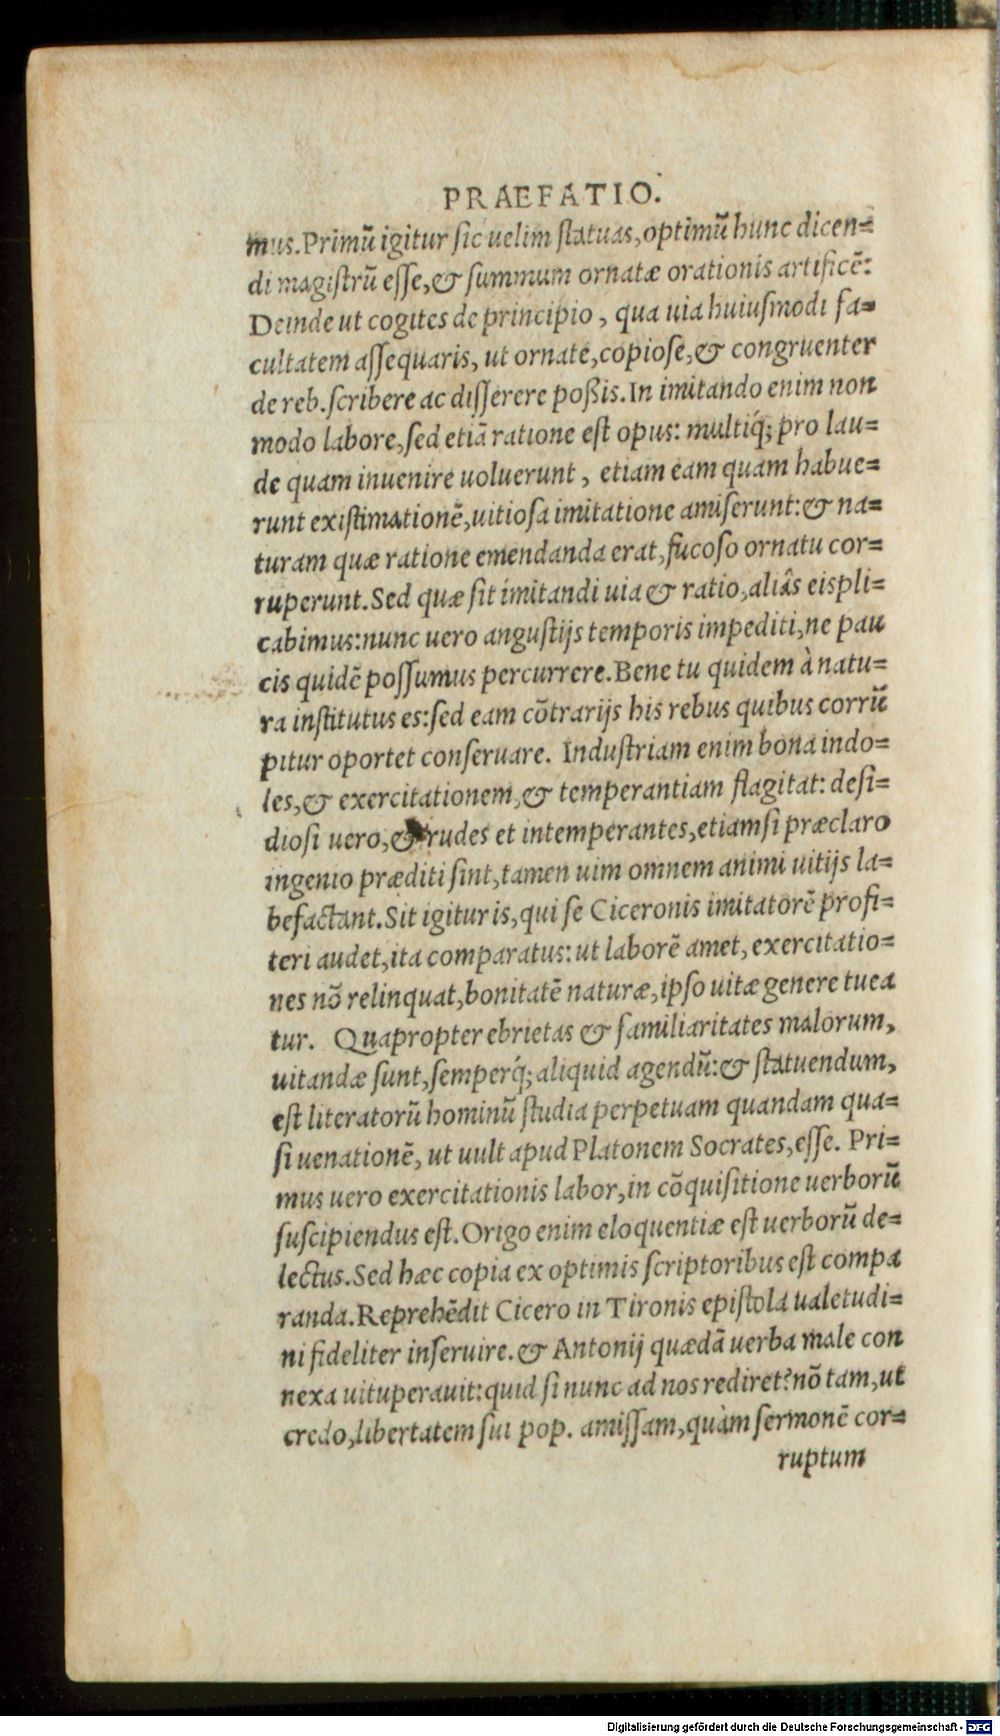 PRAEFATIO.
mus.Primũ igitur ſic uelim ſtatuas,optimũ hunc dicen=
di magiſtrũ eſſe,& ſummum ornatæ orationis artificẽ:
Deinde ut cogites de principio , qua uia huiuſmodi fa=
cultatem aſſequaris, ut ornate,copioſe,& congruenter
de reb.ſcribere ac diſſerere poßis.In imitando enim non
modo labore,ſed etiã ratione eſt opus: multiq́; pro lau=
de quam inuenire uoluerunt , etiam eam quam habue=
runt exiſtimationẽ,uitioſa imitatione amiſerunt:& na=
turam quæ ratione emendanda erat,fucoſo ornatu cor=
ruperunt.Sed quæ ſit imitandi uia & ratio,aliâs eispli=
cabimus:nunc uero anguſtijs temporis impediti,ne pau
cis quidẽ poſſumus percurrere.Bene tu quidem à natu=
ra inſtitutus es:ſed eam cõtrarijs his rebus quibus corrũ
pitur oportet conſeruare. Induſtriam enim bona indo=
les,& exercitationem,& temperantiam flagitat: deſi=
dioſi uero,& rudes et intemperantes,etiamſi præclaro
ingenio præditi ſint,tamen uim omnem animi uitijs la=
befactant.Sit igitur is,qui ſe Ciceronis imitatorẽ profi=
teri audet,ita comparatus: ut laborẽ amet, exercitatio=
nes nõ relinquat,bonitatẽ naturæ,ipſo uitæ genere tuea
tur. Quapropter ebrietas & familiaritates malorum,
uitandæ ſunt,ſemperq́; aliquid agendũ:& ſtatuendum,
eſt literatorũ hominũ ſtudia perpetuam quandam qua=
ſi uenationẽ, ut uult apud Platonem Socrates,eſſe. Pri=
mus uero exercitationis labor,in cõquiſitione uerborũ
ſuſcipiendus eſt.Origo enim eloquentiæ eſt uerborũ de=
lectus.Sed hæc copia ex optimis ſcriptoribus eſt compa
randa.Reprehẽdit Cicero in Tironis epiſtola ualetudi=
ni fideliter inſeruire.& Antonij quædã uerba male con
nexa uituperauit:quid ſi nunc ad nos rediret?nõ tam,ut
credo,libertatem ſui pop. amiſſam,quàm ſermonẽ cor=
ruptum
Digitalisierung gefördert durch die Deutsche Forschungsgemeinschaft - DFG